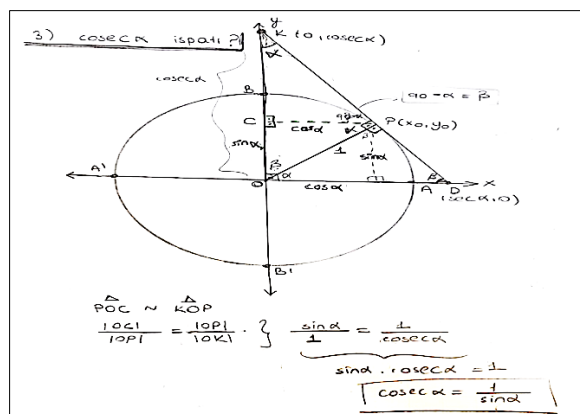 3) cosecα ispatı?
y
K (0,cosecα)
α
cosecα
90-α = β
B
C
cosα
90-α
P(x₀,y₀)
α
sinα
1
sinα
β
A'
O
α
cosα
β
A
D
x
(secα,0)
B'
POC ~ KOP
|OC| / |OP| = |OP| / |OK| · } sinα / 1 = 1 / cosecα
sinα . cosecα = 1
cosecα = 1 / sinα